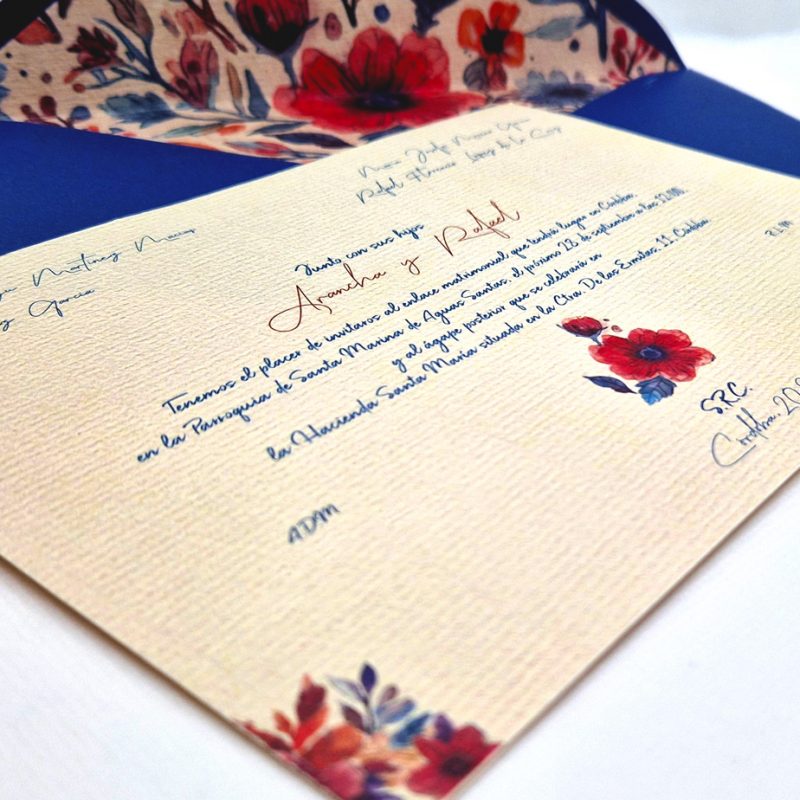 Martínez
y García
Rafael
de la
Junto con sus hijos
Arancha y Rafael
Tenemos el placer de invitaros al enlace matrimonial que tendrá lugar en Córdoba,
en la Parroquia de Santa Marina de Aguas Santas, el próximo 28 de septiembre a las 12:00,
y al ágape posterior que se celebrará en
la Hacienda Santa María situada en la Ctra. De las Ermitas, 11, Córdoba.
S.R.C.
Córdoba, 202